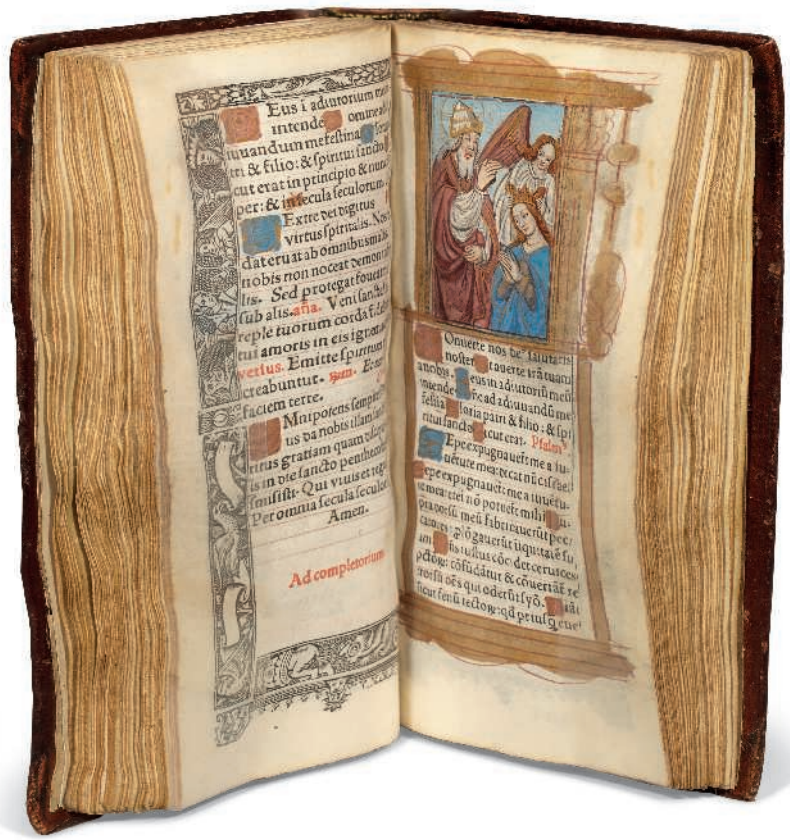 Eus i adiutorium
intende
iuuandum me festina
tri & filio: & spiritui sancto
cut erat in principio & nunc
per: & in secula seculorum.
Extre dei digitus
virtus spiritalis. Nos
dat eruat ab omnibus malis
nobis non noceat demon
lis. Sed protegat foueat
sub alis. aña. Veni san
reple tuorum corda fide
tui amoris in eis ignem
versus. Emitte spiritum
creabuntur.
faciem terre.
Mnipotens sempi
us da nobis illam
ritus gratiam quam disci
is in die sancto penthecos
smisisti. Qui viuis et regnas
Per omnia secula seculor
Amen.
Ad completorium
Onuerte nos de⁹ salutaris
noster auerte irã tuam
a nobis. eus in adiutoriũ meũ
intende ñe ad adiuuandũ me
festia loria patri & filio: & spi
ritui sancto icut erat. Psalm⁹
Epe expugnauerũt me a iu-
uẽtute mea: dicat nũc israel
epe expugnauerũt me a iuuẽtu-
te mea: etei nõ potuerũt mihi
pra dorsũ meũ fabricauerũt pec
catores: plõgauerũt iniquitatẽ su
am ñs iustus cõcidet ceruices
pctorũ: cõfũdãtur & cõuertãtur re
trorsũ oẽs qui oderũt syõ.
sicut fenũ tectorũ: qd priusq̃ euel